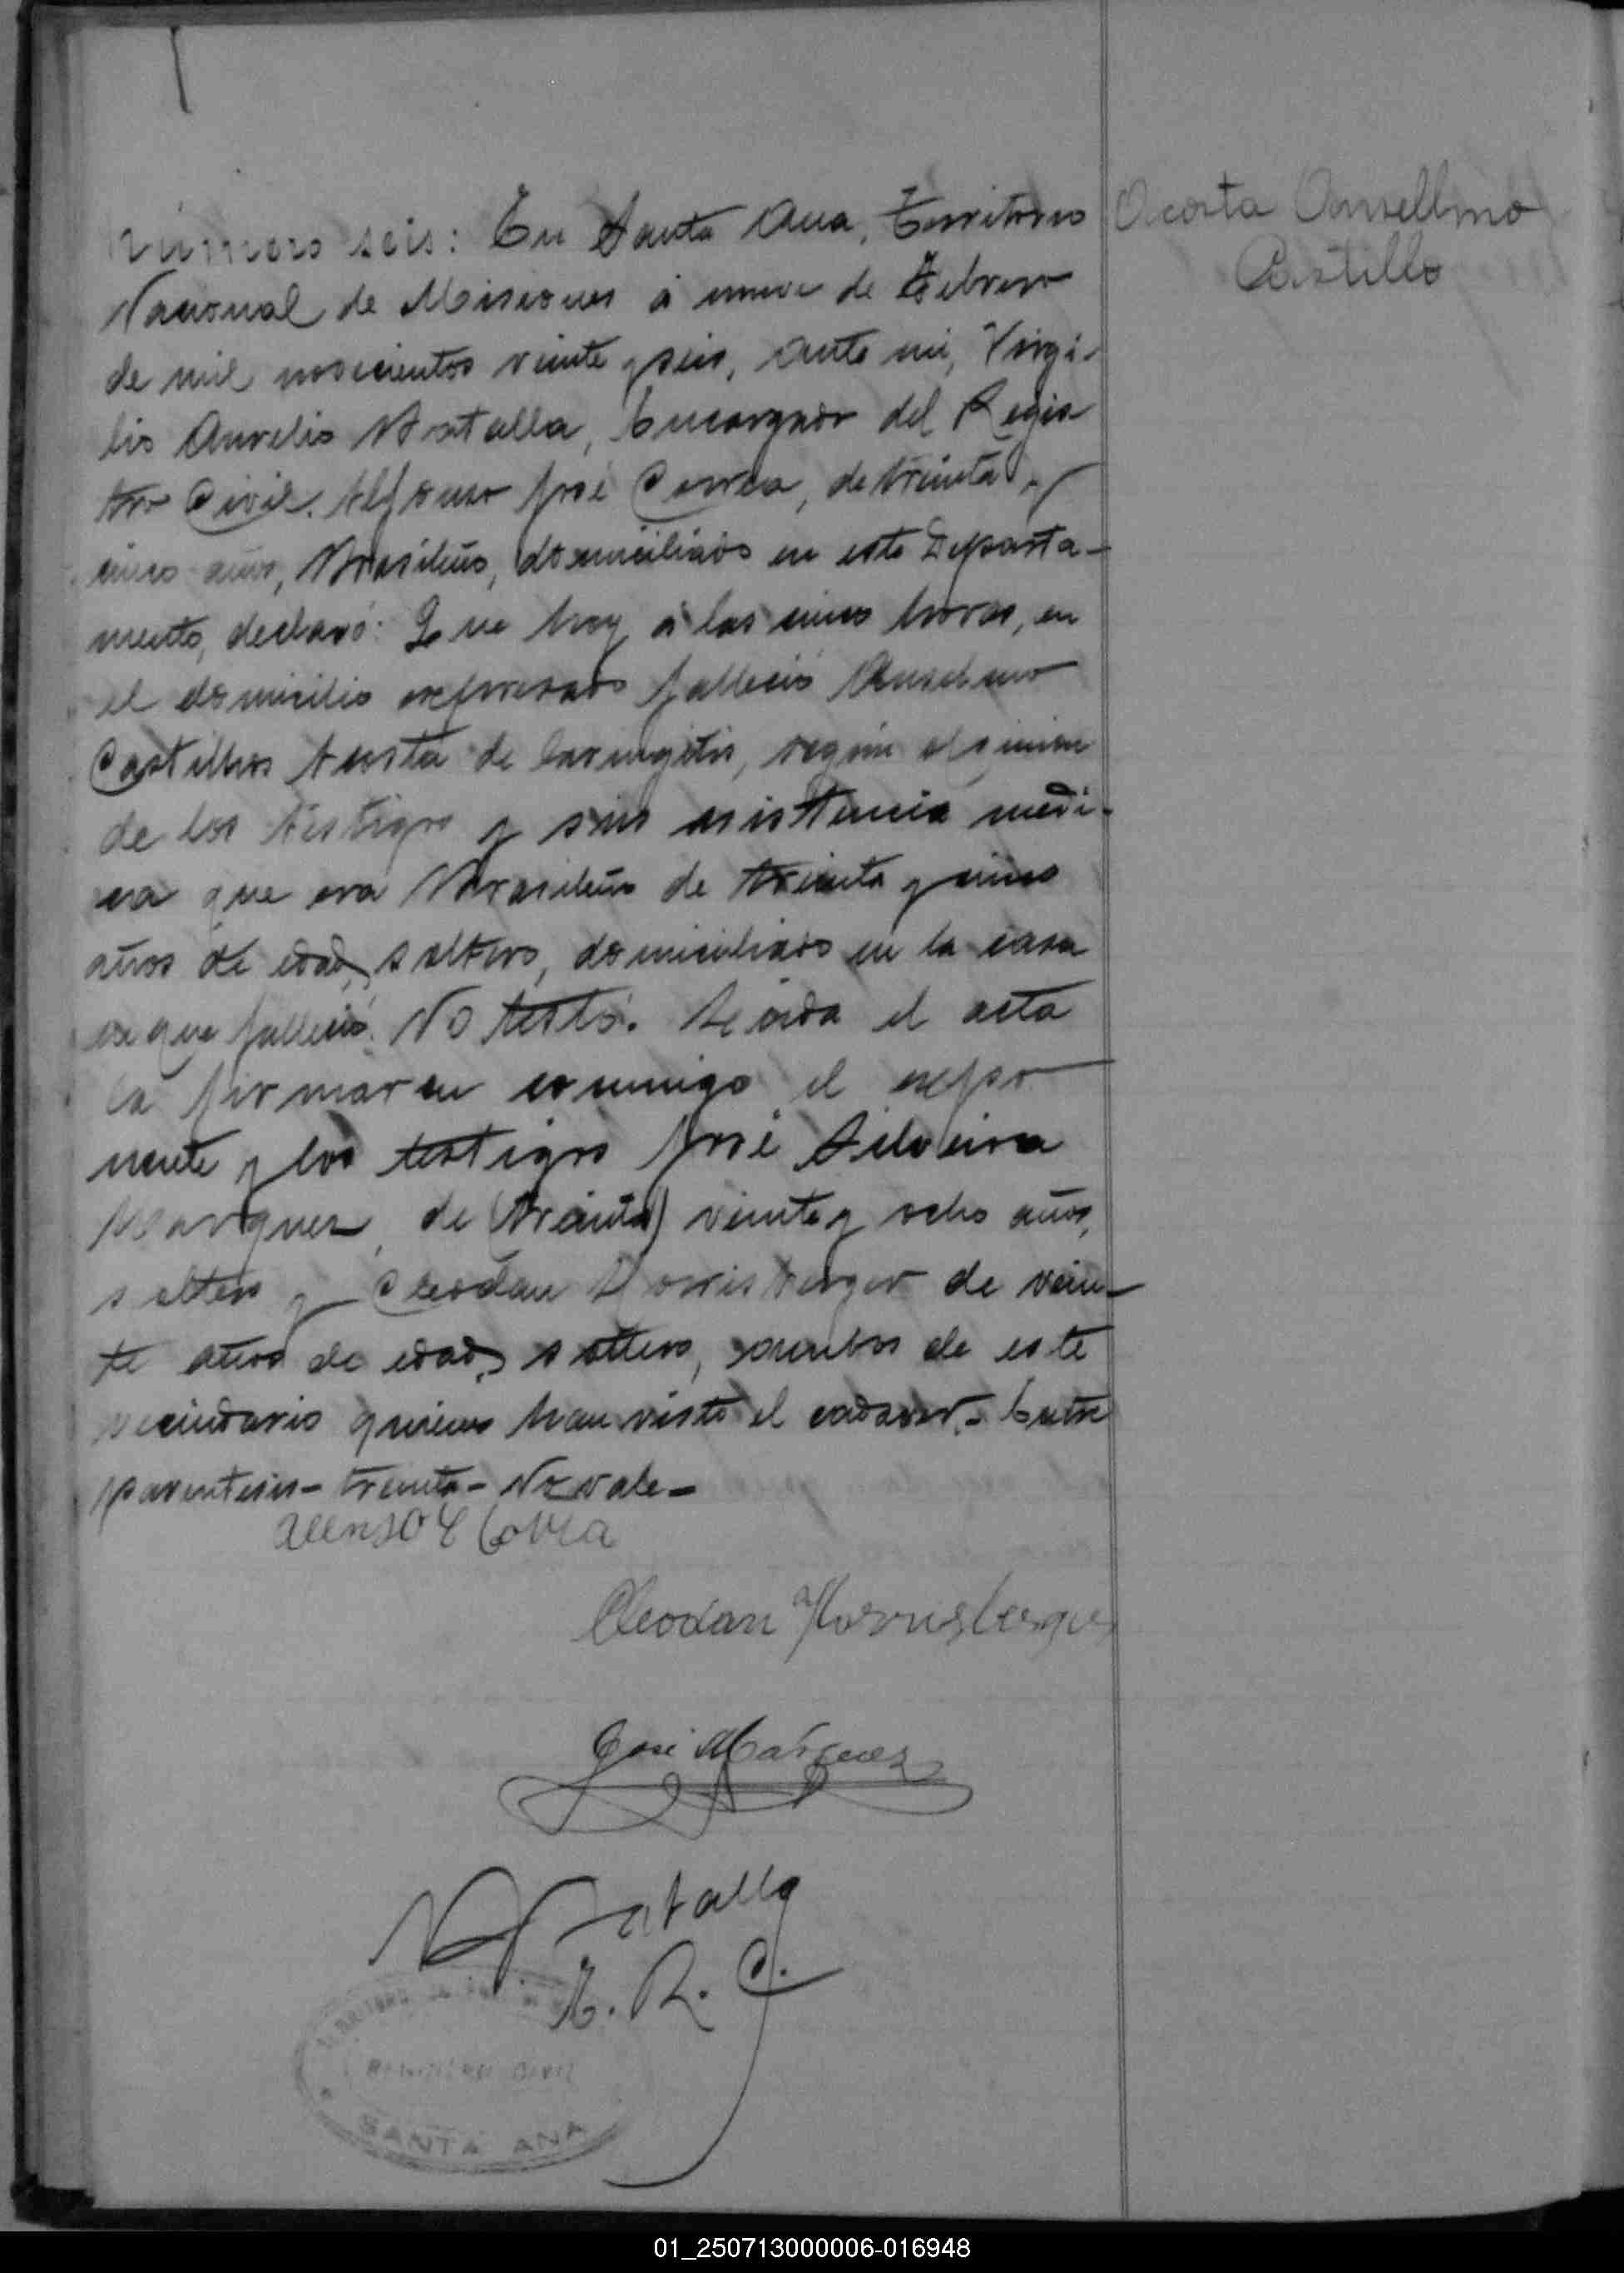 Número seis: En Santa Ana, Territorio
Nacional de Misiones á nueve de Febrero
de mil novecientos veinte y seis, ante mi, Virgi-
lio Aurelio Batalla, Encargado del Regis
tro Civil. Alfonso José Correa, de treinta y
cinco años, Brasileño, domiciliado en este Departa-
mento, declaró: Que hoy á las cinco horas, en
el domicilio expresado falleció Anselmo
Castillos Acosta de laringitis, según opinion
de los testigos y sin asistencia medi-
ca que era Brasileño de treinta y cinco
años de edad, soltero, domiciliado en la casa
en que falleció. No testó. Leída el acta
la firmaron conmigo el expo
nente y los testigos José Silveira
Marquez, de (treinta) veinte y ocho años,
soltero y Cleodan Hornisberger de vein-
te años de edad, soltero, ambos de este
vecindario quienes han visto el cadaver.- Entre
parentesis- treinta- No vale-
Cleodan Hornisberger
José Márquez
Batalla
E. R. C.
REGISTRO CIVIL
SANTA ANA
Acosta Ansellmo
Castillo
01_250713000006-016948